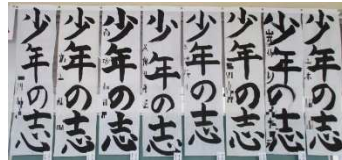 少年の志
少年の志
少年の志
少年の志
少年の志
少年の志
少年の志
少年の志